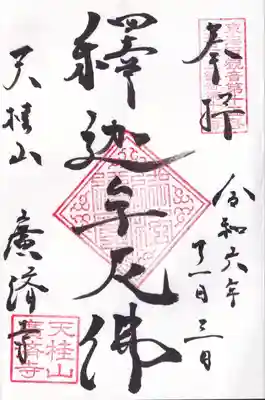 奉拝
令和六年
十一月三日
釋迦牟尼佛
天桂山
廣済寺
天桂山
廣濟寺